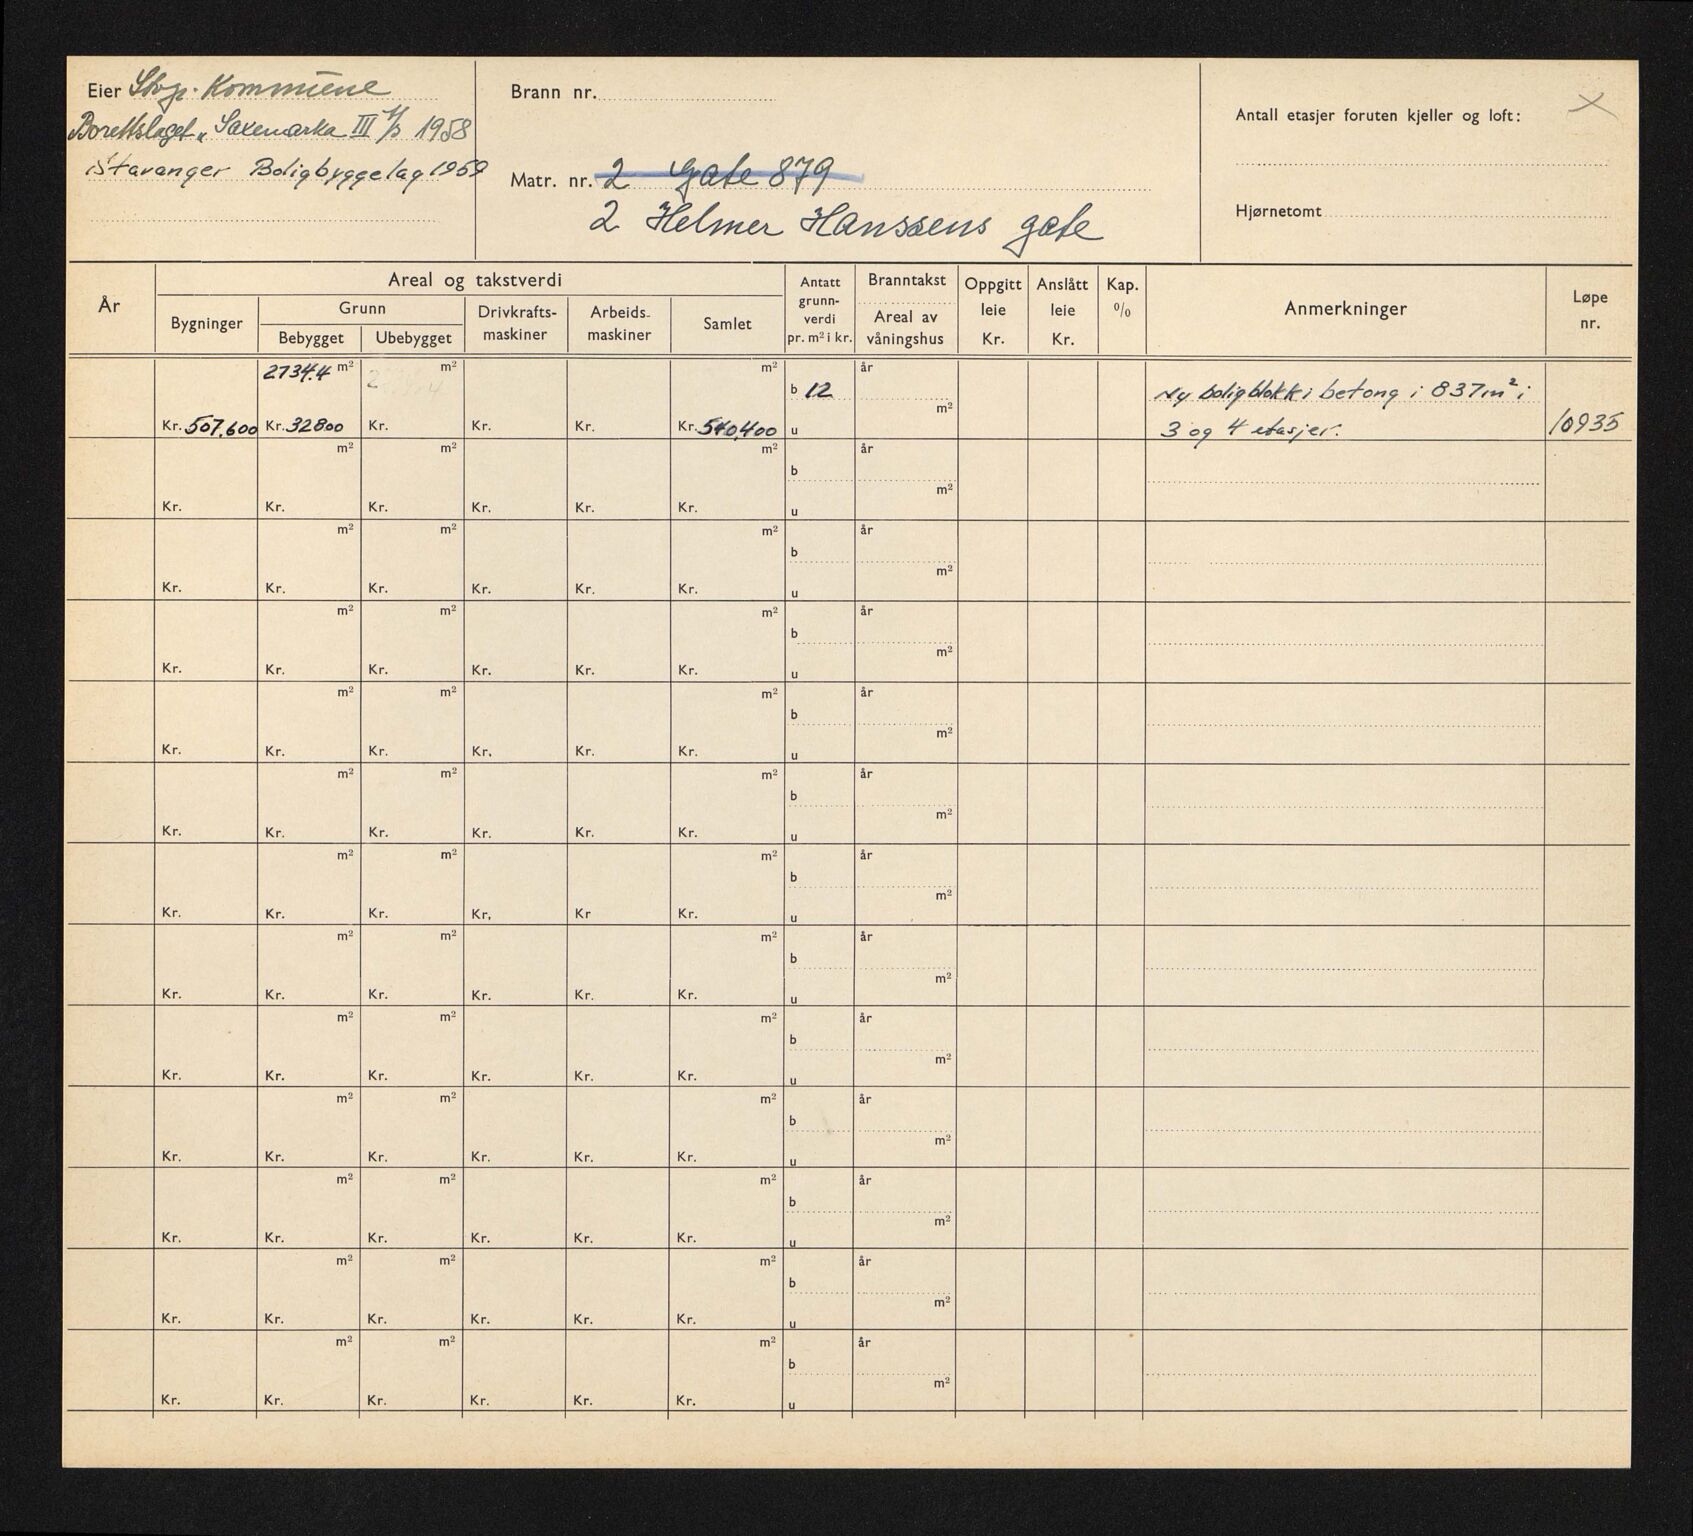 Eier Stvgr. Kommune
Borettslaget „Saxemarka III 1/3 1958
Stavanger Boligbyggelag 1959
Brann nr.
Matr. nr. 2 Gate 879
2 Helmer Hanssens gate
Antall etasjer foruten kjeller og loft:
Hjørnetomt
År
Areal og takstverdi
Bygninger
Grunn
Bebygget Ubebygget
Drivkrafts-
maskiner
Arbeids-
maskiner
Samlet
Antatt
grunn-
verdi
pr. m² i kr.
Branntakst
Areal av
våningshus
Oppgitt
leie
Kr.
Anslått
leie
Kr.
Kap.
%
Anmerkninger
Løpe
nr.
2734.4 m² m² m² b 12 år m² Ny boligblokk i betong i 837m² i
Kr. 507,600 Kr. 32800 Kr. Kr. Kr. Kr. 540,400 u 3 og 4 etasjer. 10935
m² m² m² b år m²
Kr. Kr. Kr. Kr. Kr. Kr. u
m² m² m² b år m²
Kr. Kr. Kr. Kr. Kr. Kr. u
m² m² m² b år m²
Kr. Kr. Kr. Kr. Kr. Kr. u
m² m² m² b år m²
Kr. Kr. Kr. Kr. Kr. Kr. u
m² m² m² b år m²
Kr. Kr. Kr. Kr. Kr. Kr. u
m² m² m² b år m²
Kr. Kr. Kr. Kr. Kr Kr. u
m² m² m² b år m²
Kr. Kr. Kr. Kr. Kr. Kr. u
m² m² m² b år m²
Kr. Kr. Kr. Kr. Kr. Kr. u
m² m² m² b år m²
Kr. Kr. Kr. Kr. Kr. Kr. u
m² m² m² b år m²
Kr. Kr. Kr. Kr. Kr. Kr. u
m² m² m² b år m²
Kr. Kr. Kr. Kr. Kr. Kr. u
m² m² m² b år m²
Kr. Kr. Kr. Kr. Kr. Kr. u